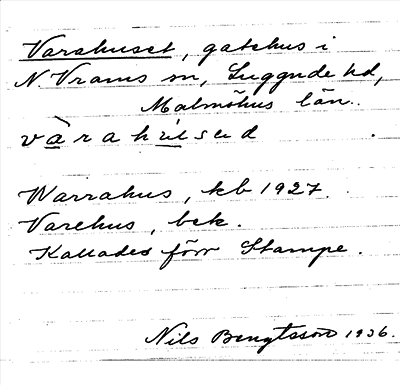 Varahuset, gatehus i
N. Vrams sn, Luggude hd,
Malmöhus län.
Warrahus, kb 1927.
Varehus, bek.
Kallades förr Stampe.
Nils Bengtsson 1936.